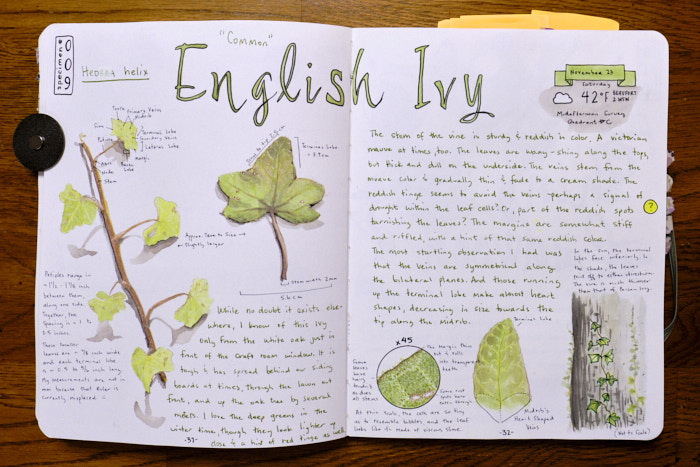 specimen #
009
Hedera helix
"Common"
English Ivy
November 23
Saturday
42°F
BEAUFORT
2 WSW
Midafternoon Survey
Quadrant #C
Primary Veins
Midrib
Terminal Lobe
Secondary Veins
Lateral Lobe
Margin
Basal Lobe
Axil
Node
Stem
Approx. True to Size and
Slightly larger
Terminal Lobe
≈ 3.9cm
Stem width 2mm
5.6 cm
Petioles range in
between them,
along one side.
Together, the
Spacing is ≈ 1 to
1.5 inches.
These smaller
leaves are ≈ 7/8 inch wide
and each terminal lobe
My measurements are not in
mm because that Ruler is
currently misplaced
While no doubt it exists else-
where, I know of this Ivy
only from the white oak just in
front of the craft room window. It is
tough & has spread behind our siding
boards at times, through the lawn out
front, and up the oak tree by several
meters. I love the deep greens in the
winter time, though they look lighter up
close & a hint of red tinge as well.
-31-
The stem of the vine is sturdy & reddish in color. A victorian
mauve at times too. The leaves are waxy-shiny along the top,
but thick and dull on the underside. The veins stem from the
mauve color & gradually thin & fade to a cream shade. The
reddish tinge seems to avoid the veins - perhaps a signal of
drought within the leaf cells? Or, part of the reddish spots
tarnishing the leaves? The margins are somewhat stiff
and ruffled, with a hint of that same reddish color.
?
The most startling observation I had was
that the veins are symmetrical along
the bilateral planes. And those running
up the terminal lobe make almost heart
shapes, decreasing in size towards the
tip along the Midrib.
In the sun, the terminal
lobes face inferiorly. In
the shade, the leaves
jut off to either direction.
The vine is much thinner
than that of Poison Ivy.
x45
The Margin, thin
but & rolls
with transparent
teeth.
Some
leaves
have
hairy
as does
all stems
Some rust
spots here
Terminal Lobe
Midrib's
Heart Shaped
Veins
At this scale, the cells are so tiny
as to resemble bubbles, and the leaf
looks like its made of viscous slime.
-32-
(Not to Scale)